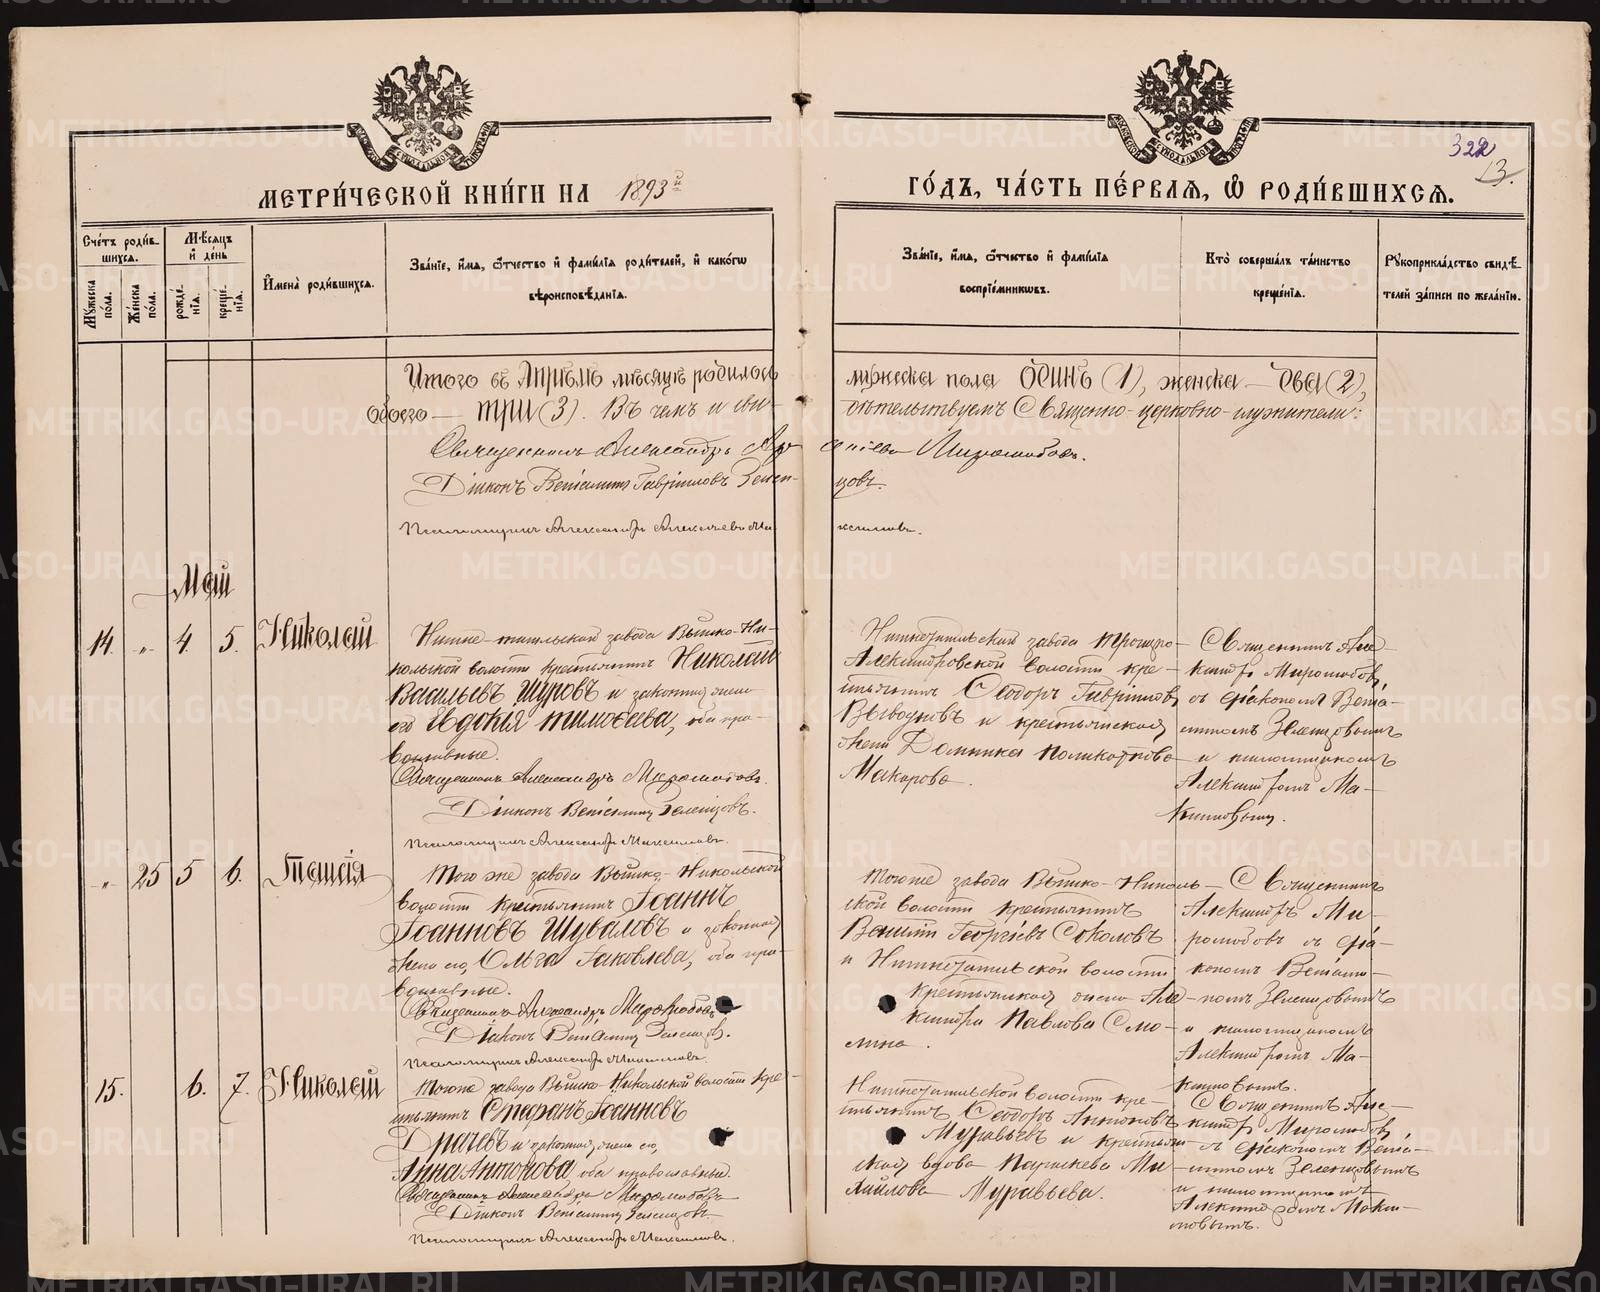 МЕТРИ́ЧЕСКОЙ КНИ́ГИ НА 1893й
ГО́ДЪ, ЧА́СТЬ ПЕ́РВАЯ, Ѡ РОДИ́ВШИХСЯ.
322
13.
Сче́тъ роди́в-
шихся.
Мѣ́сяцъ
и҆ де́нь
Мꙋ́жеска пола.
Же́нска пола.
рожде́-
нїя.
креще́-
нїя.
И҆мена̀ роди́вшихся.
Зва́нїе, и҆́мѧ, ѻ҆́тчество и҆ фамѝлїѧ роди́телей, и҆ како́гѡ
вѣроисповѣ́данїѧ.
Зва́нїе, и҆́мѧ, ѻ҆́тчество и҆ фамѝлїѧ
воспрїе́мникѡвъ.
Кто̀ соверша́лъ та́инство
креще́нїѧ.
Рꙋкоприкла́дство свидѣ́-
телей за́писи по жела́нїю.
Итого въ Апрѣлѣ мѣсяцѣ родилось
мужеска пола Одинъ (1), женска – Два (2),
обоего – три (3). Въ чемъ и сви-
дѣтельствуемъ Священно-церковно-служители:
Священникъ Александръ
Миролюбовъ.
Діаконъ Веніаминъ Гавріиловъ Зелен-
цовъ.
Псаломщикъ Александръ Алексѣевъ Ма-
ксимовъ.
Май
14. " 4. 5. Николай
Нижне-тагильскаго завода Выйско-Ни-
кольской волости крестьянинъ Николай
Васильевъ Шуровъ и законная жена
его Евдокія Тимоѳеева, оба пра-
вославные.
Священникъ Александръ Миролюбовъ.
Діаконъ Веніаминъ Зеленцовъ.
Псаломщикъ Александръ Максимовъ.
Нижнетагильскаго завода Троицко-
Александровской волости кре-
стьянинъ Ѳеодоръ Гавріиловъ
и крестьянская
жена Домника
Макарова.
Священникъ Але-
ксандръ Миролюбовъ
съ діакономъ Веніа-
миномъ Зеленцовымъ
и псаломщикомъ
Александромъ Ма-
ксимовымъ.
" 25 5 6. Таисія
Того же завода Выйско-Никольской
волости крестьянинъ Іоаннъ
Іоанновъ Шуваловъ и законная
жена его, Ольга Іаковлева, оба пра-
вославные.
Священникъ Александръ Миролюбовъ
Діаконъ Веніаминъ Зеленцовъ.
Псаломщикъ Александръ Максимовъ.
Тогоже завода Выйско-Николь-
ской волости крестьянинъ
Георгіевъ Соколовъ
и Нижнетагильской волости
крестьянская жена Але-
ксандра Павлова Смо-
лина.
Священникъ
Александръ Ми-
ролюбовъ съ діа-
кономъ Веніами-
номъ Зеленцовымъ
и псаломщикомъ
Александромъ Ма-
ксимовымъ.
15. 6. 7. Николай
Тогоже завода Выйско-Никольской волости кре-
стьянинъ Стефанъ Іоанновъ
Драчевъ и законная жена его,
Анна Антонова оба православные.
Священникъ Александръ Миролюбовъ
Діаконъ Веніаминъ Зеленцовъ.
Псаломщикъ Александръ Максимовъ.
Нижнетагильской волости кре-
стьянинъ Ѳеодоръ
Муравьевъ и крестьян-
ская вдова Параскева Ми-
хайлова Муравьева.
Священникъ Але-
ксандръ Миролюбовъ
съ діакономъ Веніа-
миномъ Зеленцовымъ
и псаломщикомъ
Александромъ Макси-
мовымъ.
METRIKI.GASO-URAL.RU